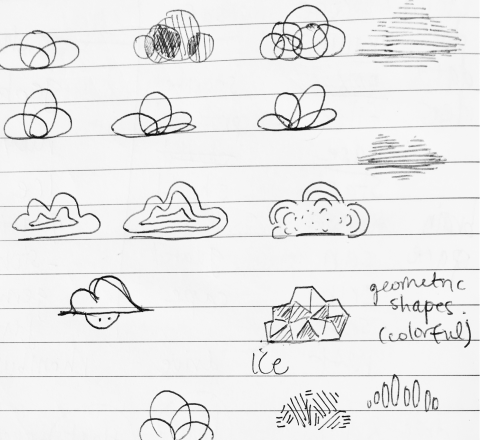 geometric
shapes.
(colorful)
ice